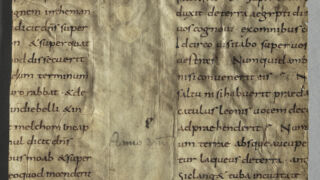 ignem in theman
dicit dns super
on & super quat
od dissecuerit
ndum terminum
uro rabbat & de
in die belli & in
& melchom in cap
nul dicit dns
bus moab & super
eo quod incenderit
Anno
duxit de terra aegypti di
uos cognoui ex omnibus co
idcirco uisitabo super uos
uestras Numquid amb
nisi conuenerit eis N
saltu nisi habuerit praeda
catulus leonis uocem de c
adpraehenderit Num
um terrae absque aucupe
tur laqueus de terra an
Si clang& tuba in ciuitate